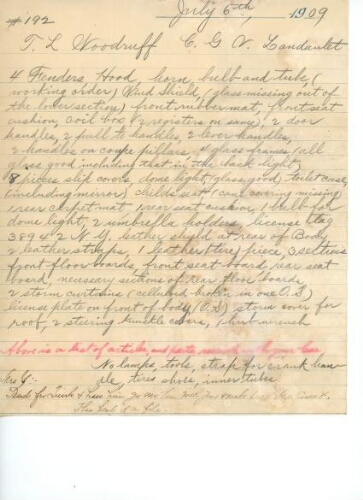 #192 July 6th, 1909
T. L. Woodruff C. G. V. Landaulet
4 Fenders, Hood, horn, bulb and tube, (
working order) Wind Shield (glass missing out of
the lower section) front rubber mat, front seat
cushion, coil box (2 registers on same), 2 door
handles, 2 pull to handles, 2 lever handles,
2 handles on coupe pillars, 4 glass frames (all
glass good including that in the back light,
8 pieces slip covers, dome light (glass good) toilet case,
(including mirror) childs seat (cane covering missing)
1 rear carpet mat 1 rear seat cushion 1 bulb for
dome light, 2 umbrella holders, license tag
38942 N.Y. leather shield at rear of Body
2 leather straps, 1 leather three piece, 3 sections
front floor boards, front seat board rear seat
board, necessary sections of rear floor boards
2 storm curtains (celluloid broken in one O.S.)
license plate on front of body (O.S.) storm cover for
roof, 2 steering knuckle covers, 1 whisk brush
Above is a list of articles, and parts on your Car
No lamps, tools, strap for crank han-
dle, tires shoes, inner tubes
Geo G:-
This list is on file.